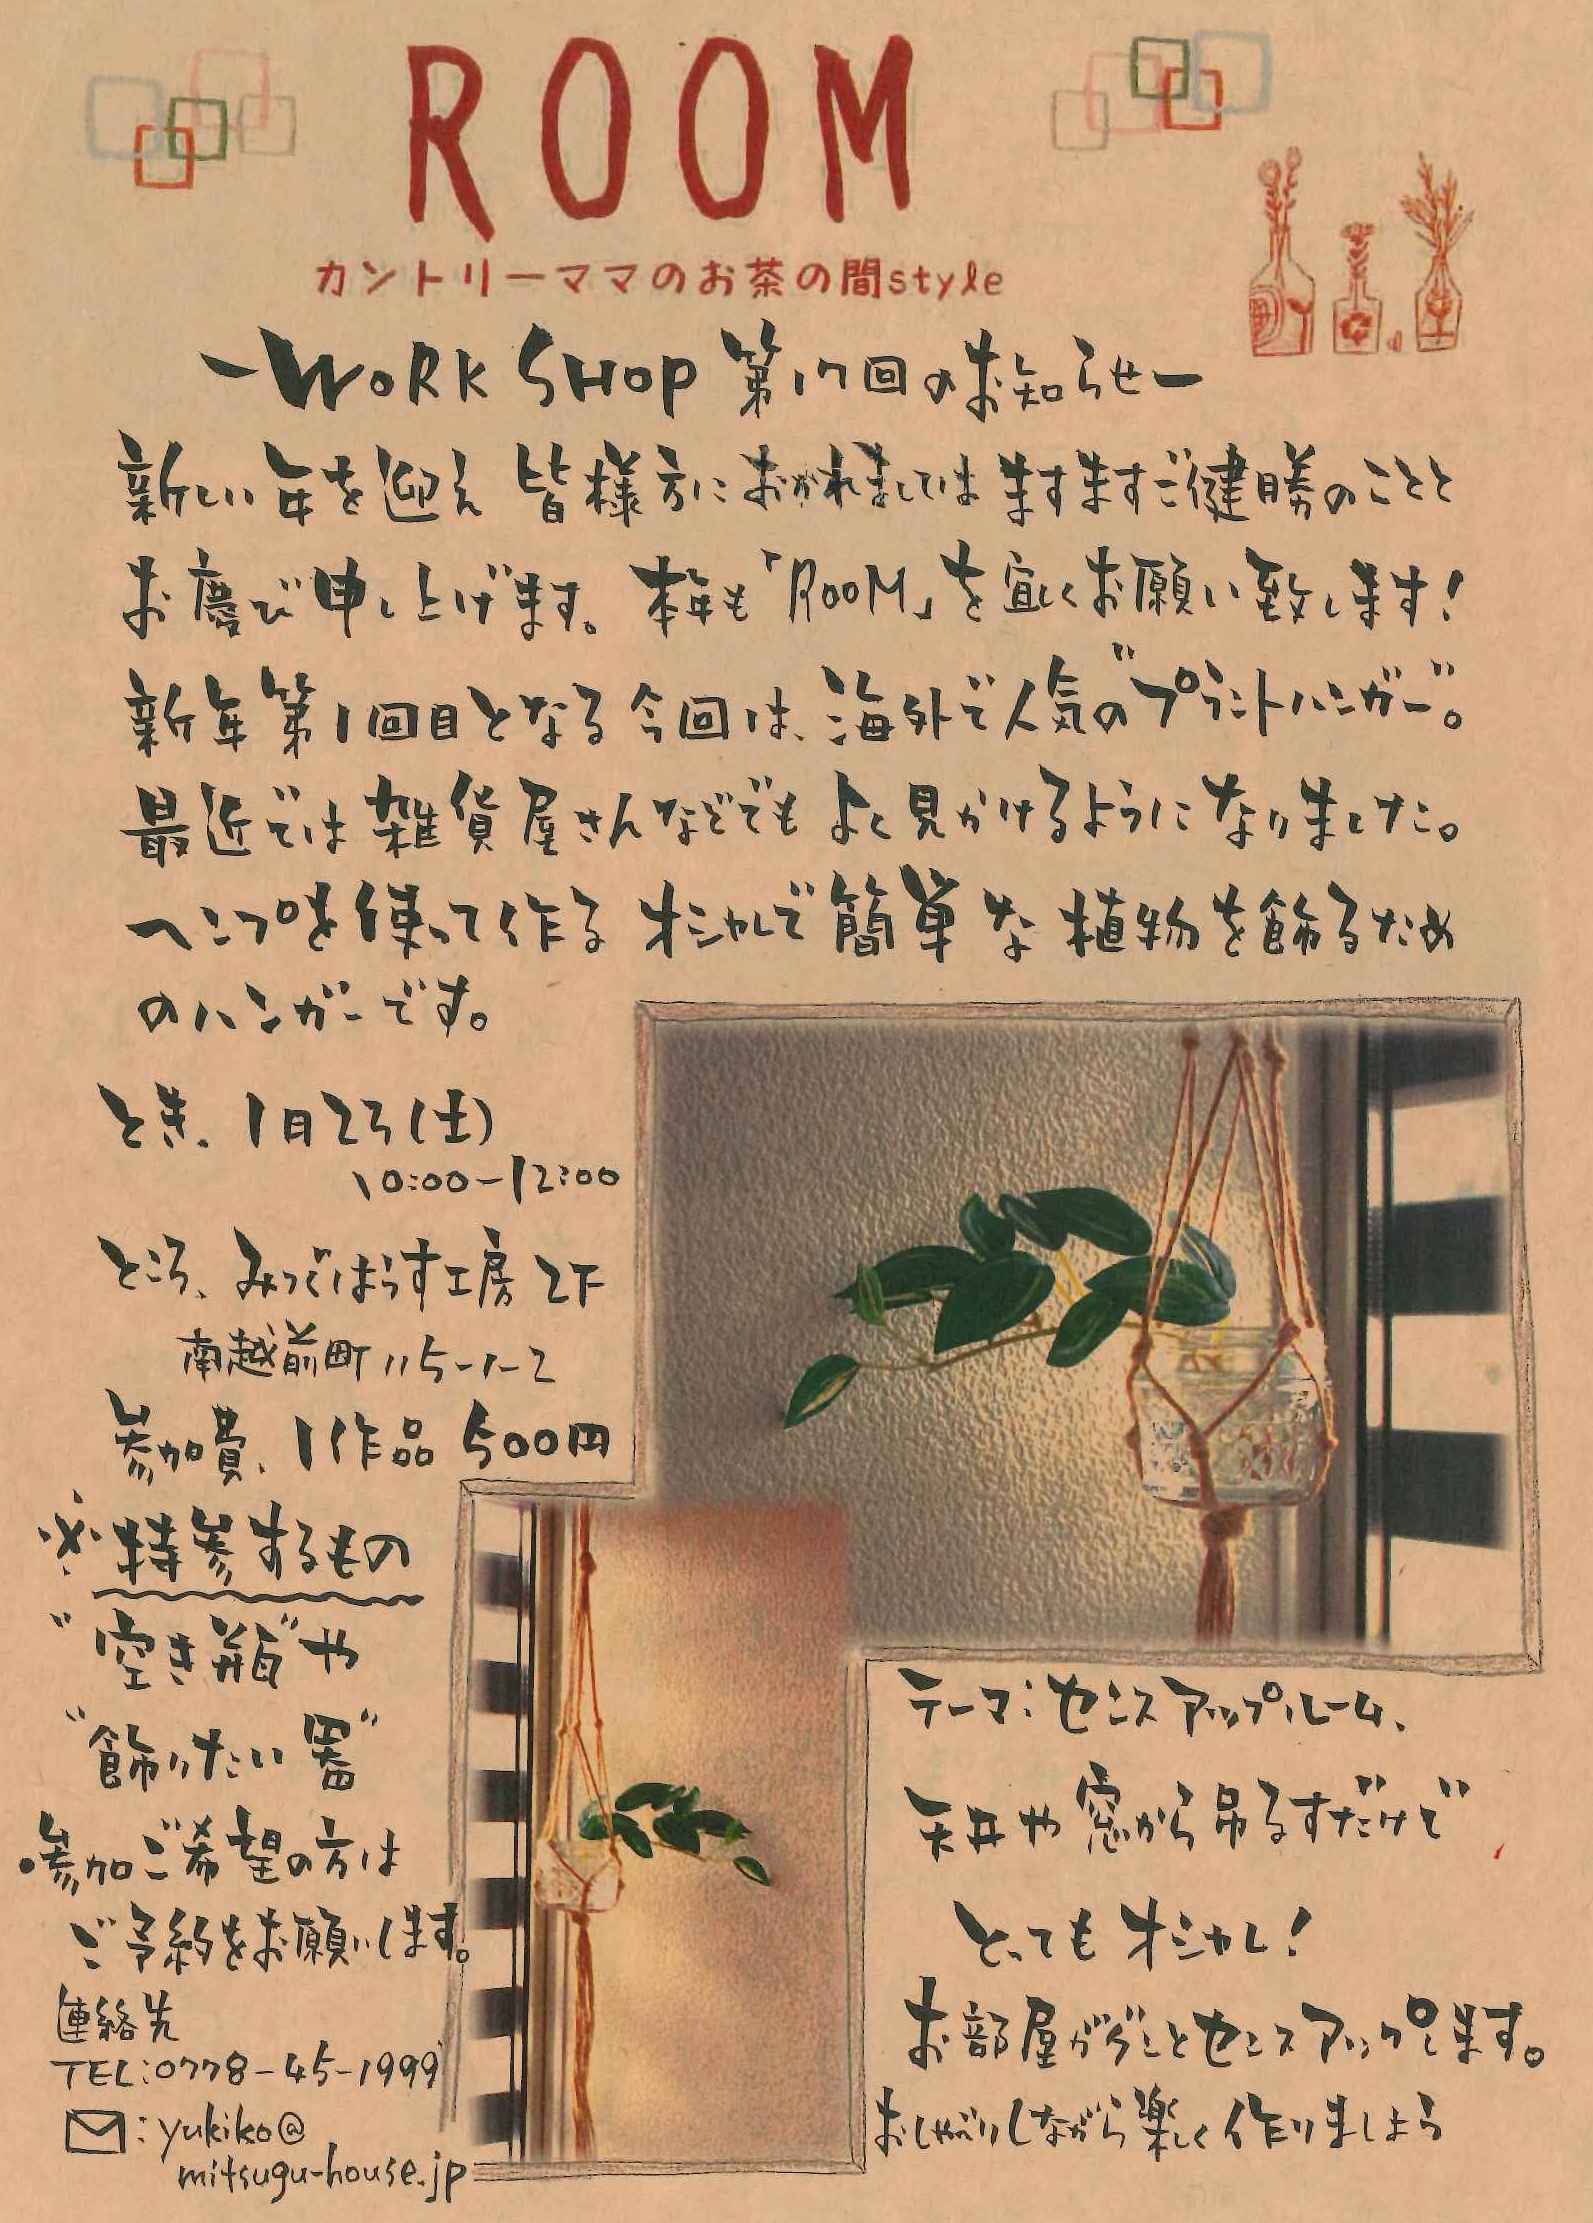 ROOM
カントリーママのお茶の間style
－WORK SHOP 第17回のお知らせ－
新しい年を迎え 皆様方におかれましては ますますご健勝のことと
お慶び申し上げます。本年も「ROOM」を宜しくお願い致します!
新年第1回目となる今回は、海外で人気の"プラントハンガー"。
最近では雑貨屋さんなどでも よく見かけるようになりました。
ヘンプを使って作る オシャレで簡単な 植物を飾るため
のハンガーです。
とき、1日23(土)
10:00－12:00
ところ、みつぐはうす工房 2F
南越前町 115-1-2
参加費、1作品 500円
※持参するもの
"空き瓶"や
"飾りたい器"
参加ご希望の方は
ご予約をお願いします。
連絡先
TEL:0778-45-1999
:yukiko@
mitsugu-house.jp
テーマ:センスアップルーム、
天井や窓から吊るすだけで
とってもオシャレ!
お部屋がグンとセンスアップします。
おしゃべりしながら楽しく作りましょう